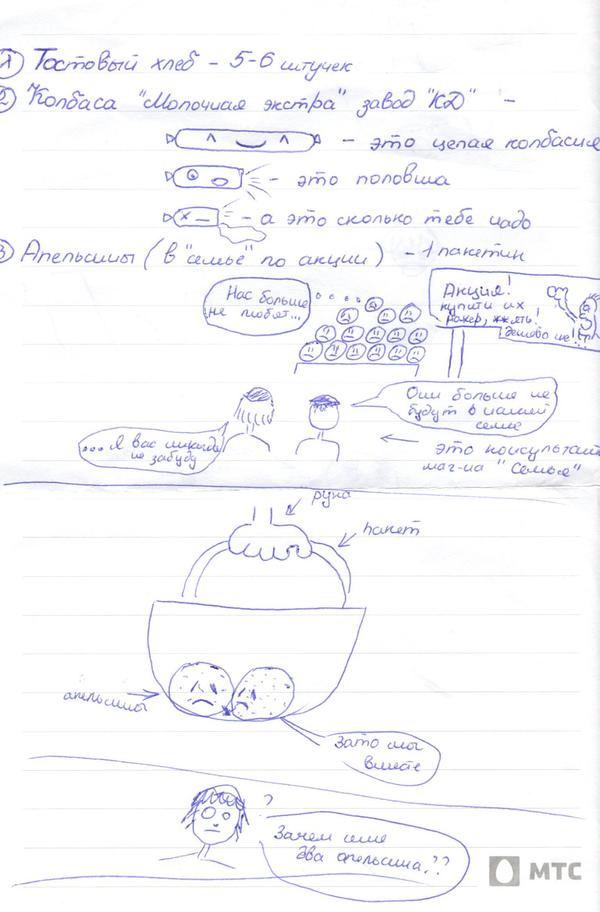 1) Тостовый хлеб - 5-6 штучек
2) Колбаса "Молочная экстра" завод "КД" -
- это целая колбасия
- это половина
- а это сколько тебе надо
3) Апельсины (в "семье" по акции) - 1 пакетик
Нас больше
не любят...
Акция!
купити их
дешево же!
Они больше не
будут в нашей
семье
... Я вас никогда
не забуду
это консультант
маг-на "Семья"
рука
пакет
апельсины
Зато мы
вместе
?
Зачем мне
два апельсина??
МТС